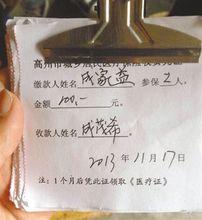 高州市城乡居民医疗保险收费凭证
缴款人姓名 成家益 参保 2 人。
金额 100.- 元。
收款人姓名 成茂希
2013年11月17日
注：1个月后凭此证领取《医疗证》